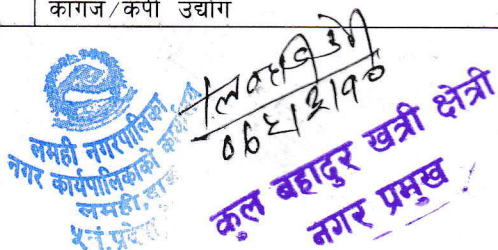 कागज/कपी उद्योग
लमही नगरपालिका
नगर कार्यपालिकाको कार्यालय
लमही,
५ नं. प्रदेश
कुल बहादुर खत्री क्षेत्री
नगर प्रमुख